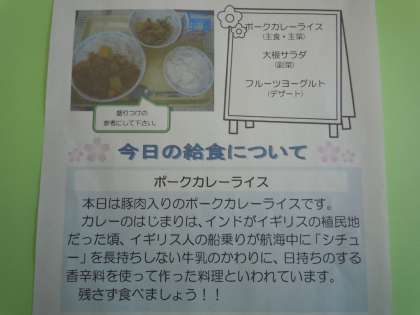 ポークカレーライス
(主食・主菜)
大根サラダ
(副菜)
フルーツヨーグルト
(デザート)
盛りつけの
参考にして下さい。
今日の給食について
ポークカレーライス
本日は豚肉入りのポークカレーライスです。
カレーのはじまりは、インドがイギリスの植民地
だった頃、イギリス人の船乗りが航海中に「シチュ
ー」を長持ちしない牛乳のかわりに、日持ちのする
香辛料を使って作った料理といわれています。
残さず食べましょう！！